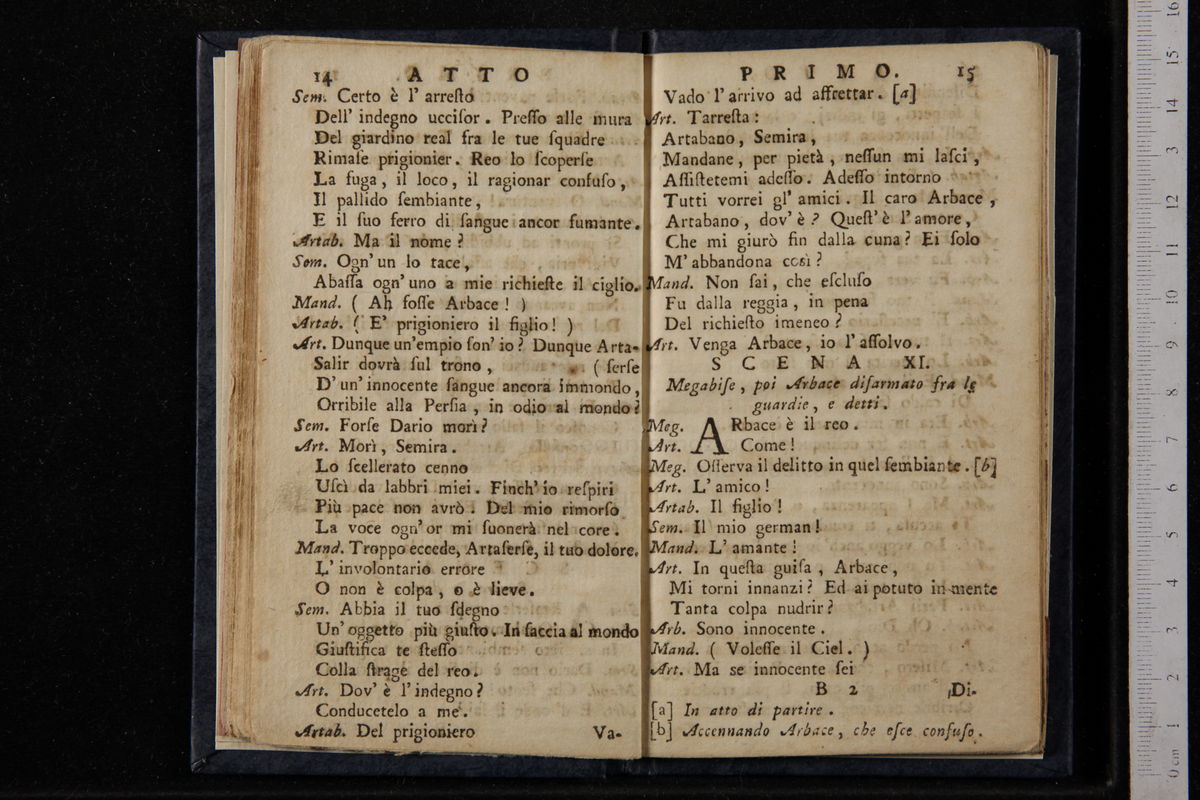 14 ATTO
Sem. Certo è l' arreſto
Dell' indegno ucciſor. Preſſo alle mura
Del giardino real fra le tue ſquadre
Rimaſe prigionier. Reo lo ſcoperſe
La fuga, il loco, il ragionar confuſo,
Il pallido ſembiante,
E il ſuo ferro di ſangue ancor fumante.
Artab. Ma il nome?
Sem. Ogn' un lo tace,
Abaſſa ogn' uno a mie richieſte il ciglio.
Mand. ( Ah foſſe Arbace! )
Artab. ( E' prigioniero il figlio! )
Art. Dunque un'empio ſon' io? Dunque Arta-
Salir dovrà ſul trono, ( ſerſe
D' un' innocente ſangue ancora immondo,
Orribile alla Perſia, in odio al mondo?
Sem. Forſe Dario morì?
Art. Morì, Semira.
Lo ſcellerato cenno
Uſcì da labbri miei. Finch' io reſpiri
Più pace non avrò. Del mio rimorſo
La voce ogn' or mi ſuonerà nel core.
Mand. Troppo eccede, Artaſerſe, il tuo dolore.
L' involontario errore
O non è colpa, o è lieve.
Sem. Abbia il tuo ſdegno
Un' oggetto più giuſto. In faccia al mondo
Giuſtifica te ſteſſo
Colla ſtrage del reo.
Art. Dov' è l' indegno?
Conducetelo a me.
Artab. Del prigioniero Va-
PRIMO. 15
Vado l' arrivo ad affrettar. [a]
Art. Tarreſta:
Artabano, Semira,
Mandane, per pietà, neſſun mi laſci,
Aſſiſtetemi adeſſo. Adeſſo intorno
Tutti vorrei gl' amici. Il caro Arbace,
Artabano, dov' è? Queſt' è l' amore,
Che mi giurò fin dalla cuna? Ei ſolo
M' abbandona così?
Mand. Non ſai, che eſcluſo
Fu dalla reggia, in pena
Del richieſto imeneo?
Art. Venga Arbace, io l' aſſolvo.
SCENA XI.
Megabiſe, poi Arbace diſarmato fra le
guardie, e detti.
Meg. ARbace è il reo.
Art. Come!
Meg. Oſſerva il delitto in quel ſembiante. [b]
Art. L' amico!
Artab. Il figlio!
Sem. Il mio german!
Mand. L' amante!
Art. In queſta guiſa, Arbace,
Mi torni innanzi? Ed ai potuto in mente
Tanta colpa nudrir?
Arb. Sono innocente.
Mand. ( Voleſſe il Ciel. )
Art. Ma se innocente ſei
B 2 Di-
[a] In atto di partire.
[b] Accennando Arbace, che eſce confuſo.
0 cm 1 2 3 4 5 6 7 8 9 10 11 12 13 14 15 16